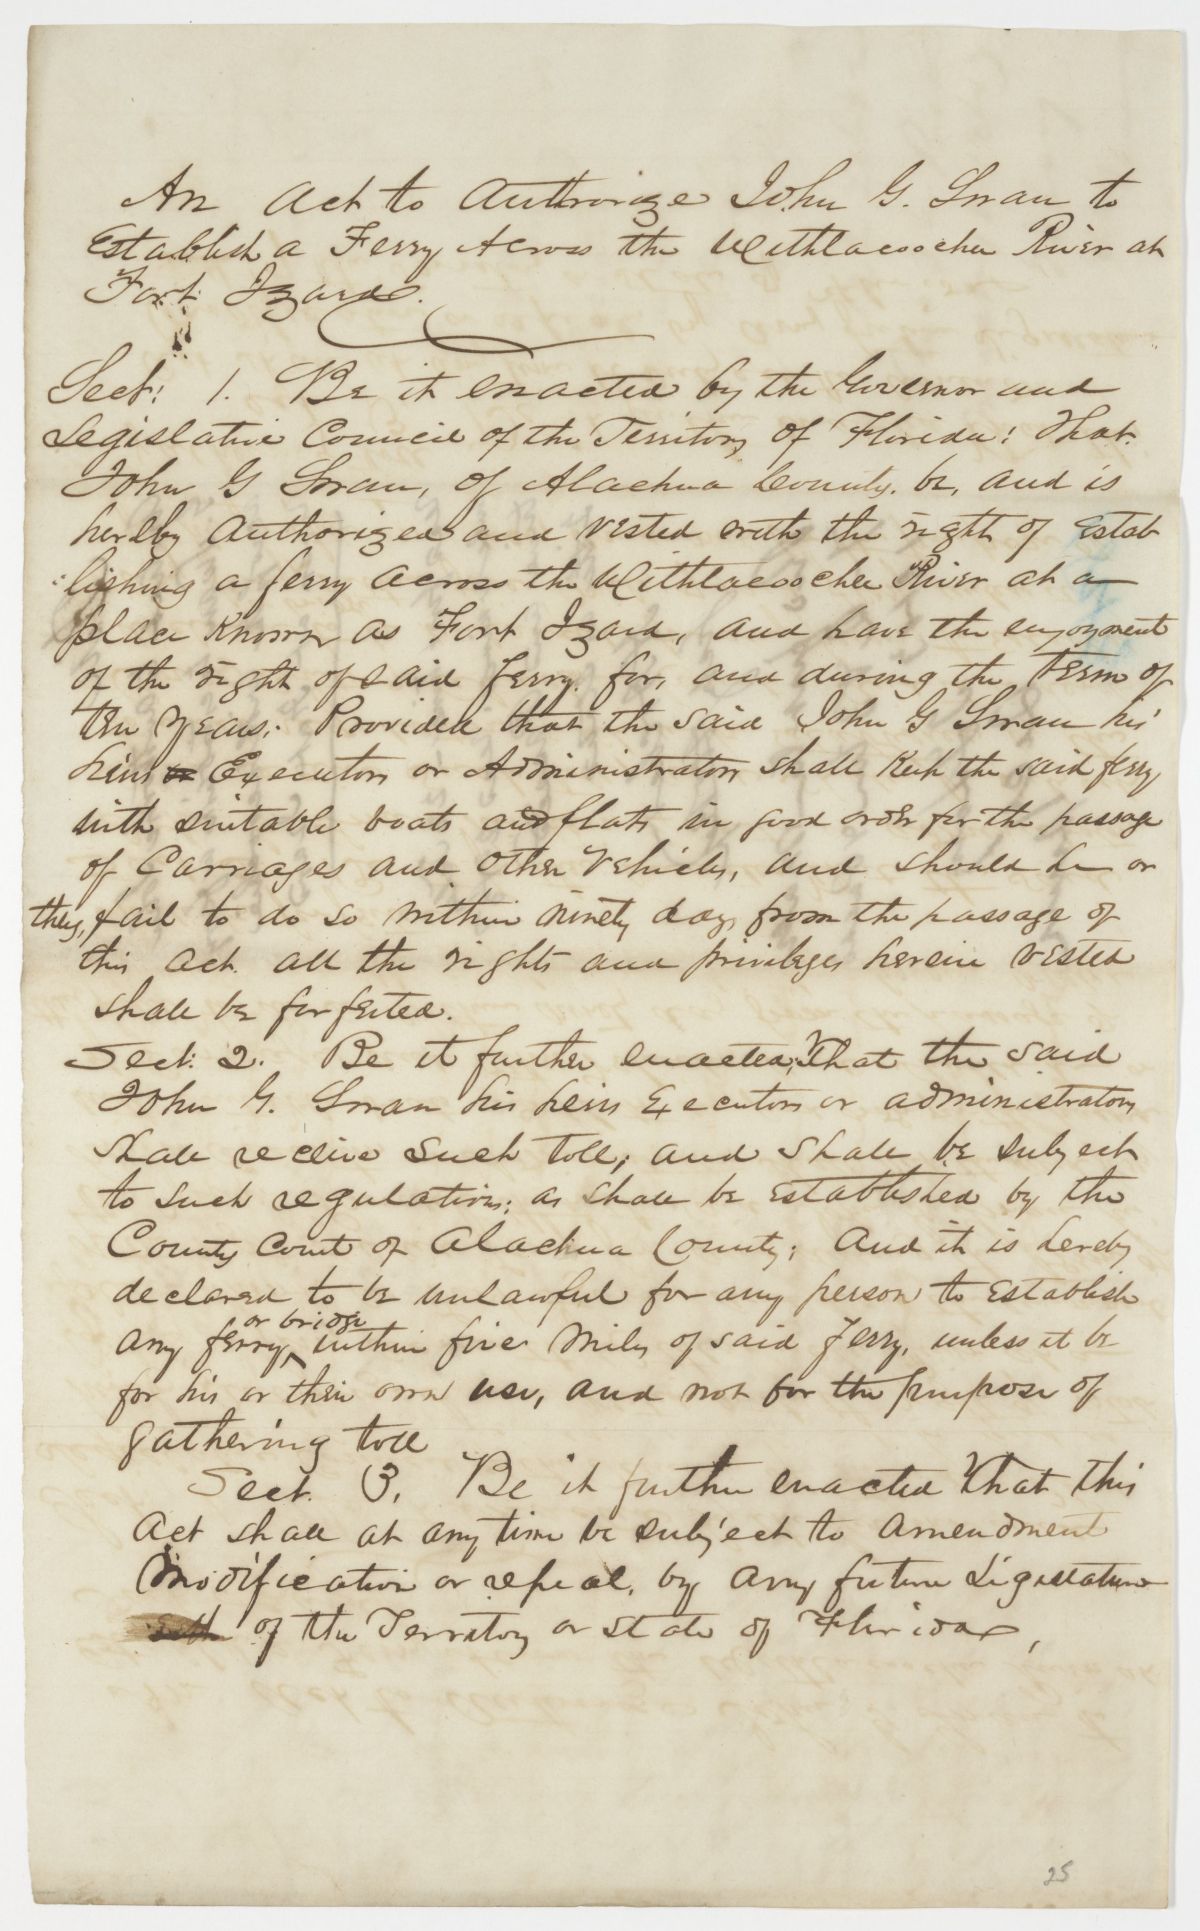 An Act to Authorize John G. Swan to
Establish a Ferry Across the Withlacoochee River at
Fort Izard.
Sect: 1. Be it enacted by the Governor and
Legislative Council of the Territory of Florida: That
John G Swan, of Alachua County, be, and is
hereby Authorized and vested with the right of Estab
lishing a ferry across the Withlacoochee River at a
place Known as Fort Izard, and have the enjoyment
of the right of said ferry, for, and during the Term of
ten years; Provided that the said John G Swan his
heirs or Executors or Administrators shall Keep the said ferry
with suitable boats and flats in good order for the passage
of Carriages and other vehicles, and should he or
they, fail to do so within ninety days from the passage of
this Act all the rights and privileges herein vested
shall be forfeited.
Sect: 2. Be it further enacted, That the said
John G. Swan his heirs Executors or administrators
shall receive such toll, and shall be subject
to such regulations; as shall be Established by the
County Court of Alachua County; And it is hereby
declared to be unlawful for any person to Establish
any ferry, or bridge within five miles of said ferry, unless it be
for his or their own use, and not for the purpose of
gathering toll
Sect. 3. Be it further enacted That this
Act shall at any time be subject to amendment
Modification or repeal, by any future Ligislature
of the Territory or State of Florida,
25